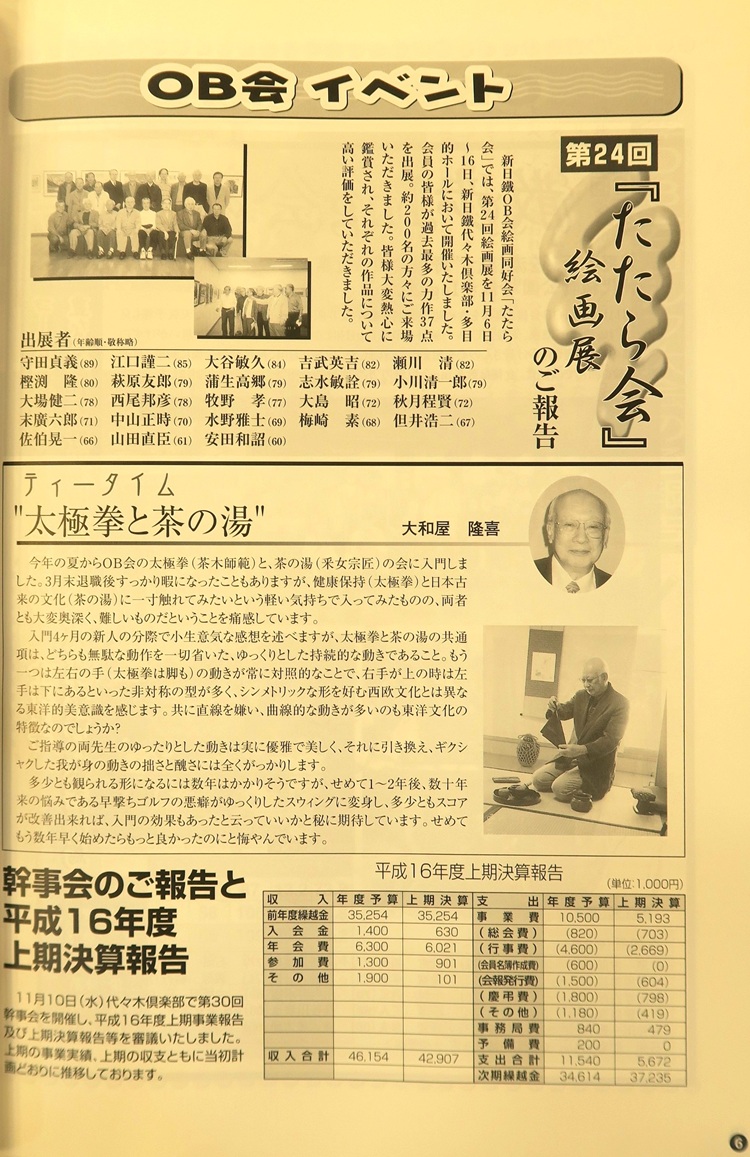 OB会 イベント
第24回
『たたら会』
絵画展
のご報告
新日鐵OB会絵画同好会「たたら
会」では、第24回絵画展を11月6日
～16日、新日鐵代々木倶楽部・多目
的ホールにおいて開催いたしました。
会員の皆様が過去最多の力作37点
を出展。約200名の方々にご来場
いただきました。皆様大変熱心に
鑑賞され、それぞれの作品について
高い評価をしていただきました。
出展者(年齢順・敬称略)
守田貞義(89) 江口謹二(85) 大谷敏久(84) 吉武英吉(82) 瀬川 清(82)
樫渕 隆(80) 萩原友郎(79) 蒲生高郷(79) 志水敏詮(79) 小川清一郎(79)
大場健二(78) 西尾邦彦(78) 牧野 孝(77) 大島 昭(72) 秋月程賢(72)
末廣六郎(71) 中山正時(70) 水野雅士(69) 梅崎 素(68) 但井浩二(67)
佐伯晃一(66) 山田直臣(61) 安田和詔(60)
ティータイム
"太極拳と茶の湯"
大和屋 隆喜
今年の夏からOB会の太極拳(茶木師範)と、茶の湯(釆女宗匠)の会に入門しま
した。3月末退職後すっかり暇になったこともありますが、健康保持(太極拳)と日本古
来の文化(茶の湯)に一寸触れてみたいという軽い気持ちで入ってみたものの、両者
とも大変奥深く、難しいものだということを痛感しています。
入門4ヶ月の新人の分際で小生意気な感想を述べますが、太極拳と茶の湯の共通
項は、どちらも無駄な動作を一切省いた、ゆっくりとした持続的な動きであること。もう
一つは左右の手(太極拳は脚も)の動きが常に対照的なことで、右手が上の時は左
手は下にあるといった非対称の型が多く、シンメトリックな形を好む西欧文化とは異な
る東洋的美意識を感じます。共に直線を嫌い、曲線的な動きが多いのも東洋文化の
特徴なのでしょうか?
ご指導の両先生のゆったりとした動きは実に優雅で美しく、それに引き換え、ギクシ
ャクした我が身の動きの拙さと醜さには全くがっかりします。
多少とも観られる形になるには数年はかかりそうですが、せめて1～2年後、数十年
来の悩みである早撃ちゴルフの悪癖がゆっくりしたスウィングに変身し、多少ともスコア
が改善出来れば、入門の効果もあったと云っていいかと秘に期待しています。せめて
もう数年早く始めたらもっと良かったのにと悔やんでいます。
幹事会のご報告と
平成16年度
上期決算報告
11月10日(水)代々木倶楽部で第30回
幹事会を開催し、平成16年度上期事業報告
及び上期決算報告等を審議いたしました。
上期の事業実績、上期の収支ともに当初計
画どおりに推移しております。
平成16年度上期決算報告
(単位:1,000円)
収 入 年度予算 上期決算 支 出 年度予算 上期決算
前年度繰越金 35,254 35,254 事業費 10,500 5,193
入会金 1,400 630 (総会費) (820) (703)
年会費 6,300 6,021 (行事費) (4,600) (2,669)
参加費 1,300 901 (会員名簿作成費) (600) (0)
その他 1,900 101 (会報発行費) (1,500) (604)
(慶弔費) (1,800) (798)
(その他) (1,180) (419)
事務局費 840 479
予備費 200 0
収入合計 46,154 42,907 支出合計 11,540 5,672
次期繰越金 34,614 37,235
6